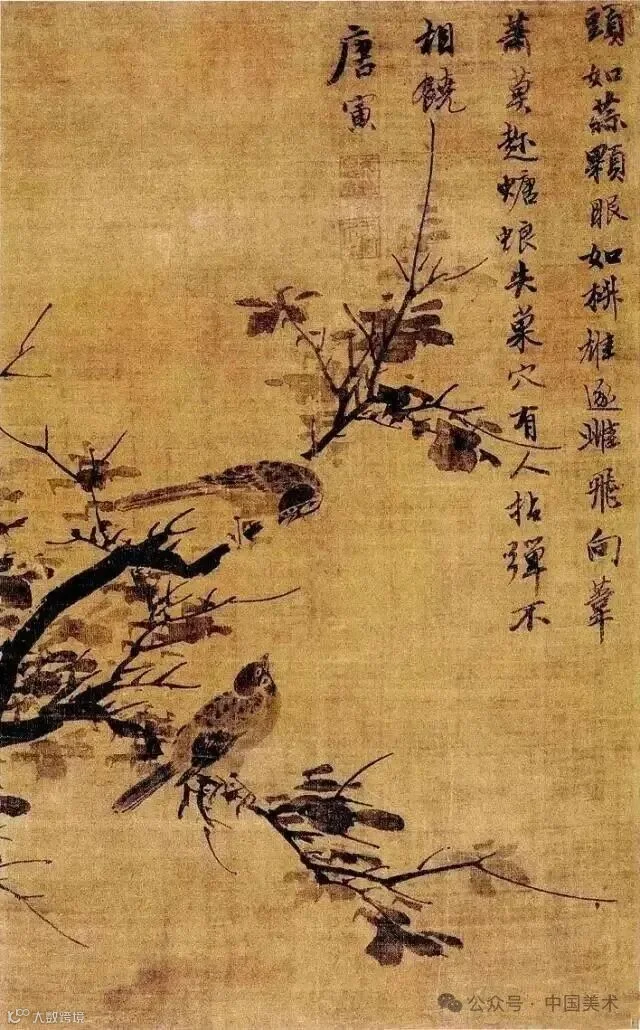 頭如蒜顆眼如椒雄逐雌飛向葦
蕭莫趂螗蜋失巢穴有人拈彈不
相饒
唐寅
公众号 · 中国美术
大数跨境